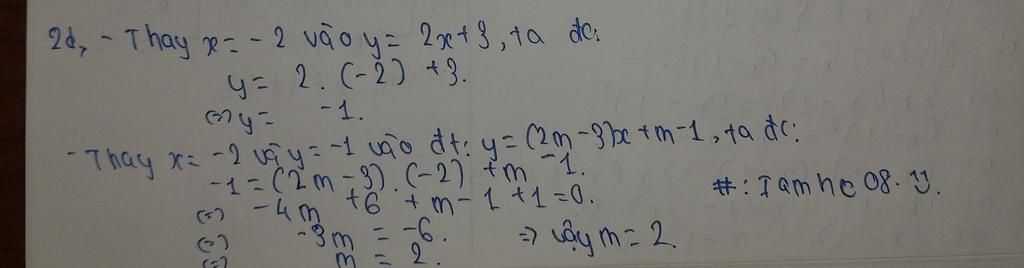 2d, - Thay x = - 2 vào y = 2x + 3, ta đc:
y = 2 . (-2) + 3.
(=) y = -1.
- Thay x = -2 và y = -1 vào đt: y = (2m - 3)x + m - 1, ta đc:
-1 = (2m - 3) . (-2) + m - 1.
(=) -4m + 6 + m - 1 + 1 = 0.
#: Iamhc 08. :)).
(=) -3m = -6. => vậy m = 2.
(=) m = 2.